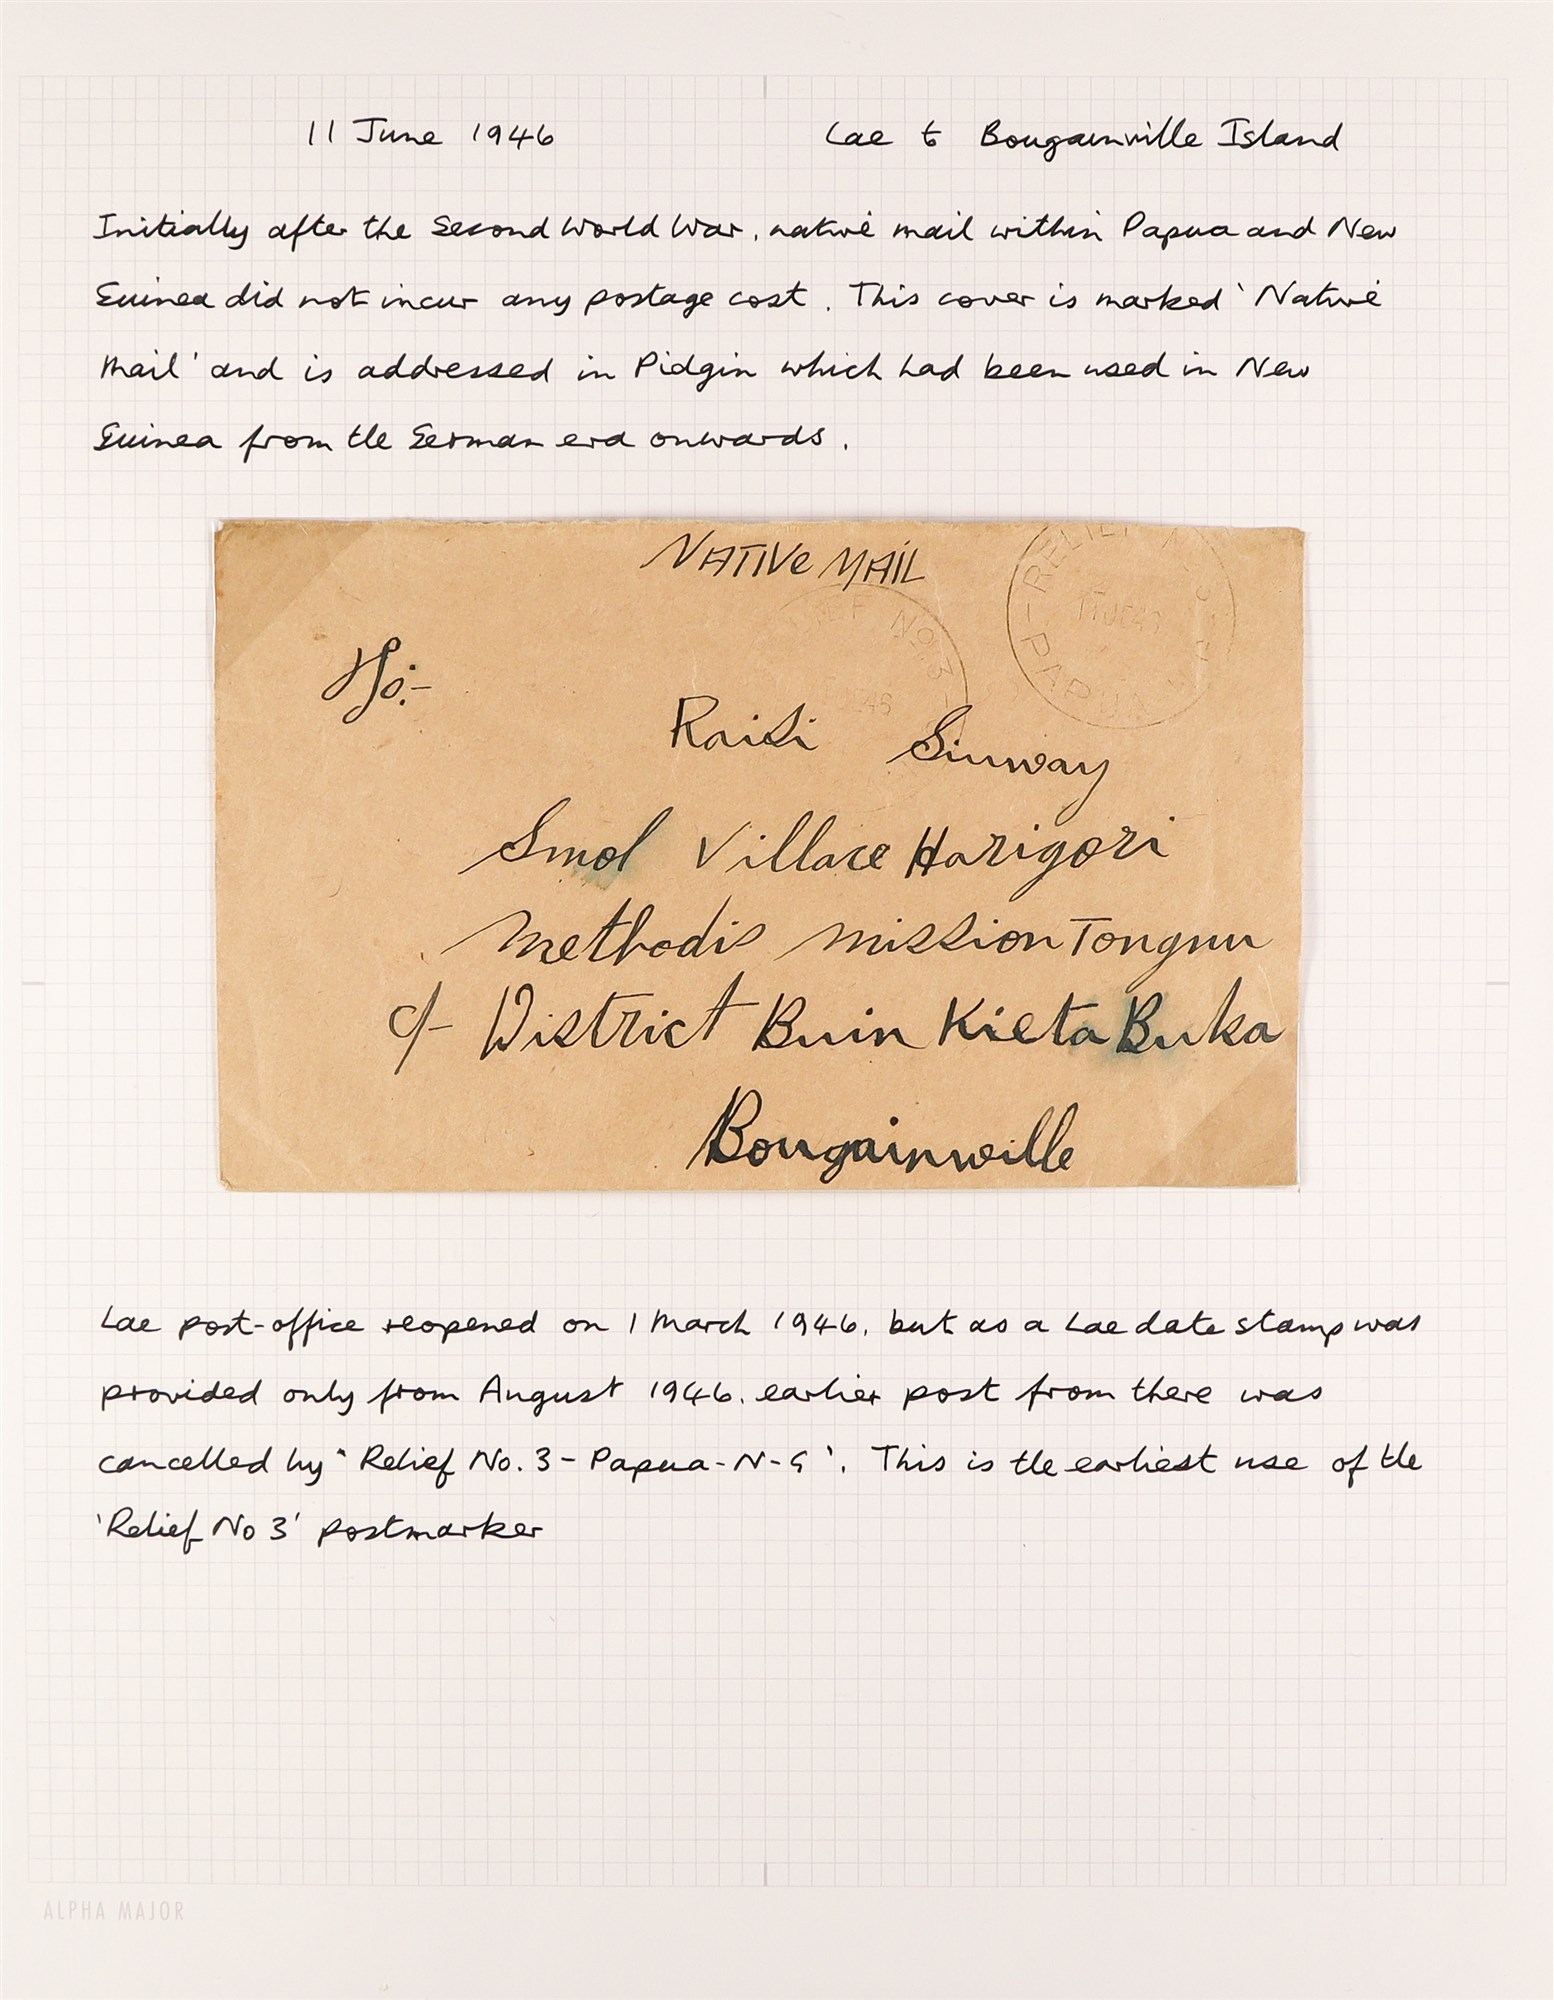 11 June 1946 Lae to Bougainville Island
Initially after the Second World War, native mail within Papua and New
Guinea did not incur any postage cost. This cover is marked 'Native
Mail' and is addressed in Pidgin which had been used in New
Guinea from the German era onwards.
NATIVe MAIL
RELIEF
PAPUA
IEF No.3-
To:-
Raisi Sinway
Smol Villace Harigori
Methodis mission Tongnu
c/- District Buin Kieta Buka
Bougainville
Lae post-office reopened on 1 March 1946, but as a Lae date stamp was
provided only from August 1946, earlier post from there was
cancelled by 'Relief No. 3 - Papua - N - G'. This is the earliest use of the
'Relief No 3' postmarker
ALPHA MAJOR